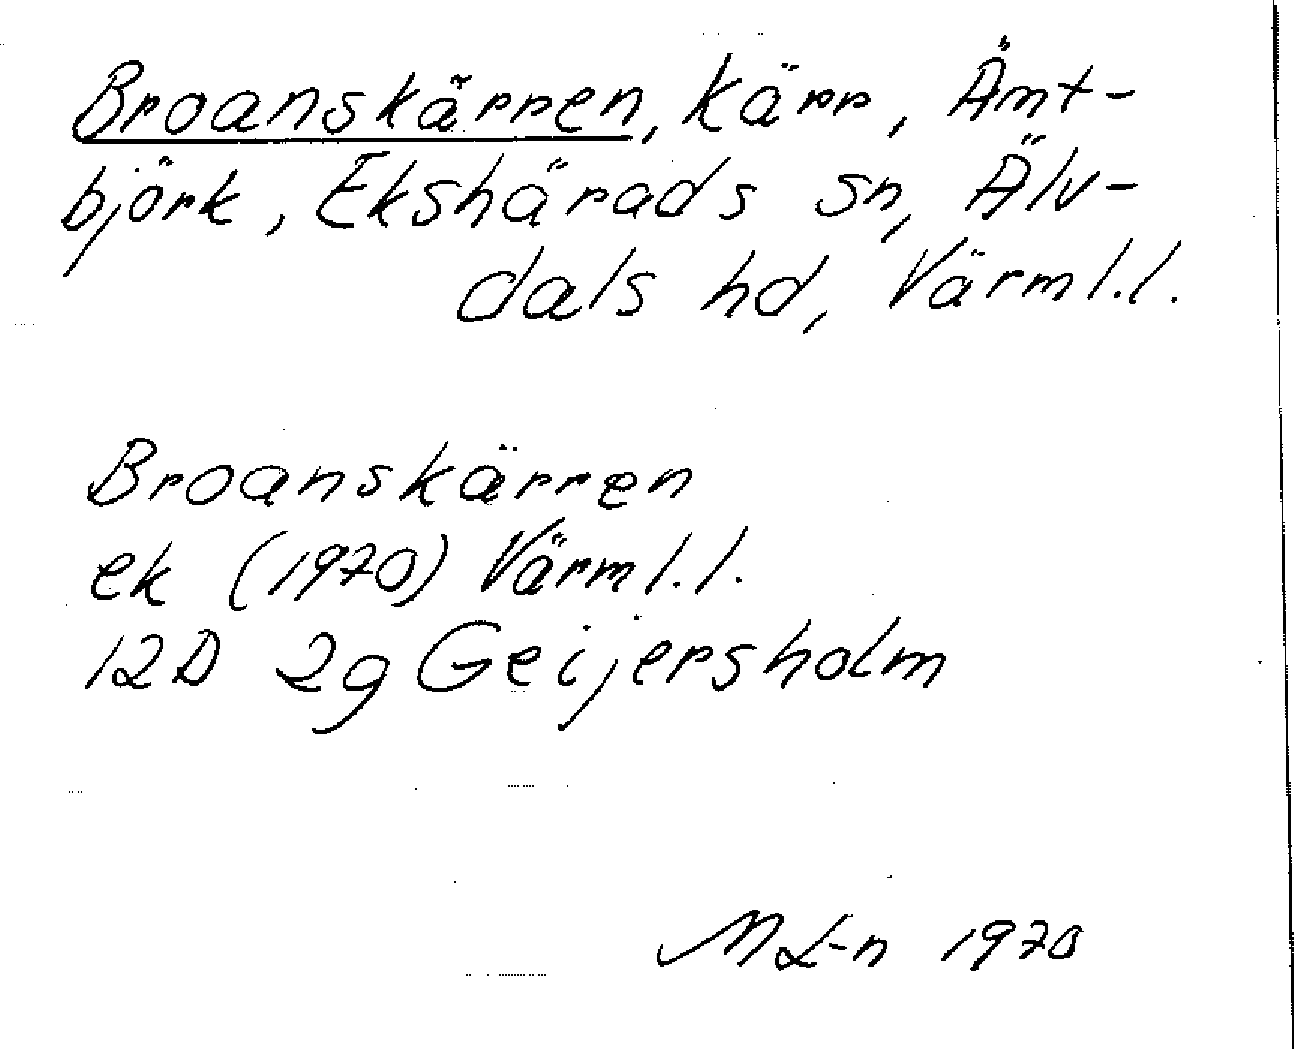 Broanskärren, kärr, Ämt-
björk, Ekshärads sn, Älv-
dals hd, Värml.l.
Broanskärren
ek (1970) Värml.l.
12D 2g Geijersholm
ML-n 1970